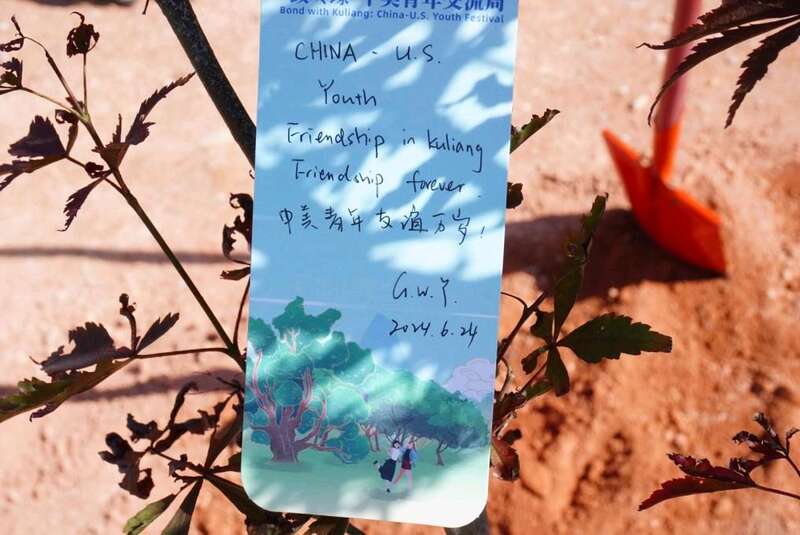 中美青年交流周
Bond with Kuliang: China-U.S. Youth Festival
CHINA - U.S.
Youth
Friendship in Kuliang
Friendship forever.
中美青年友谊万岁!
G.W.Y.
2024.6.24